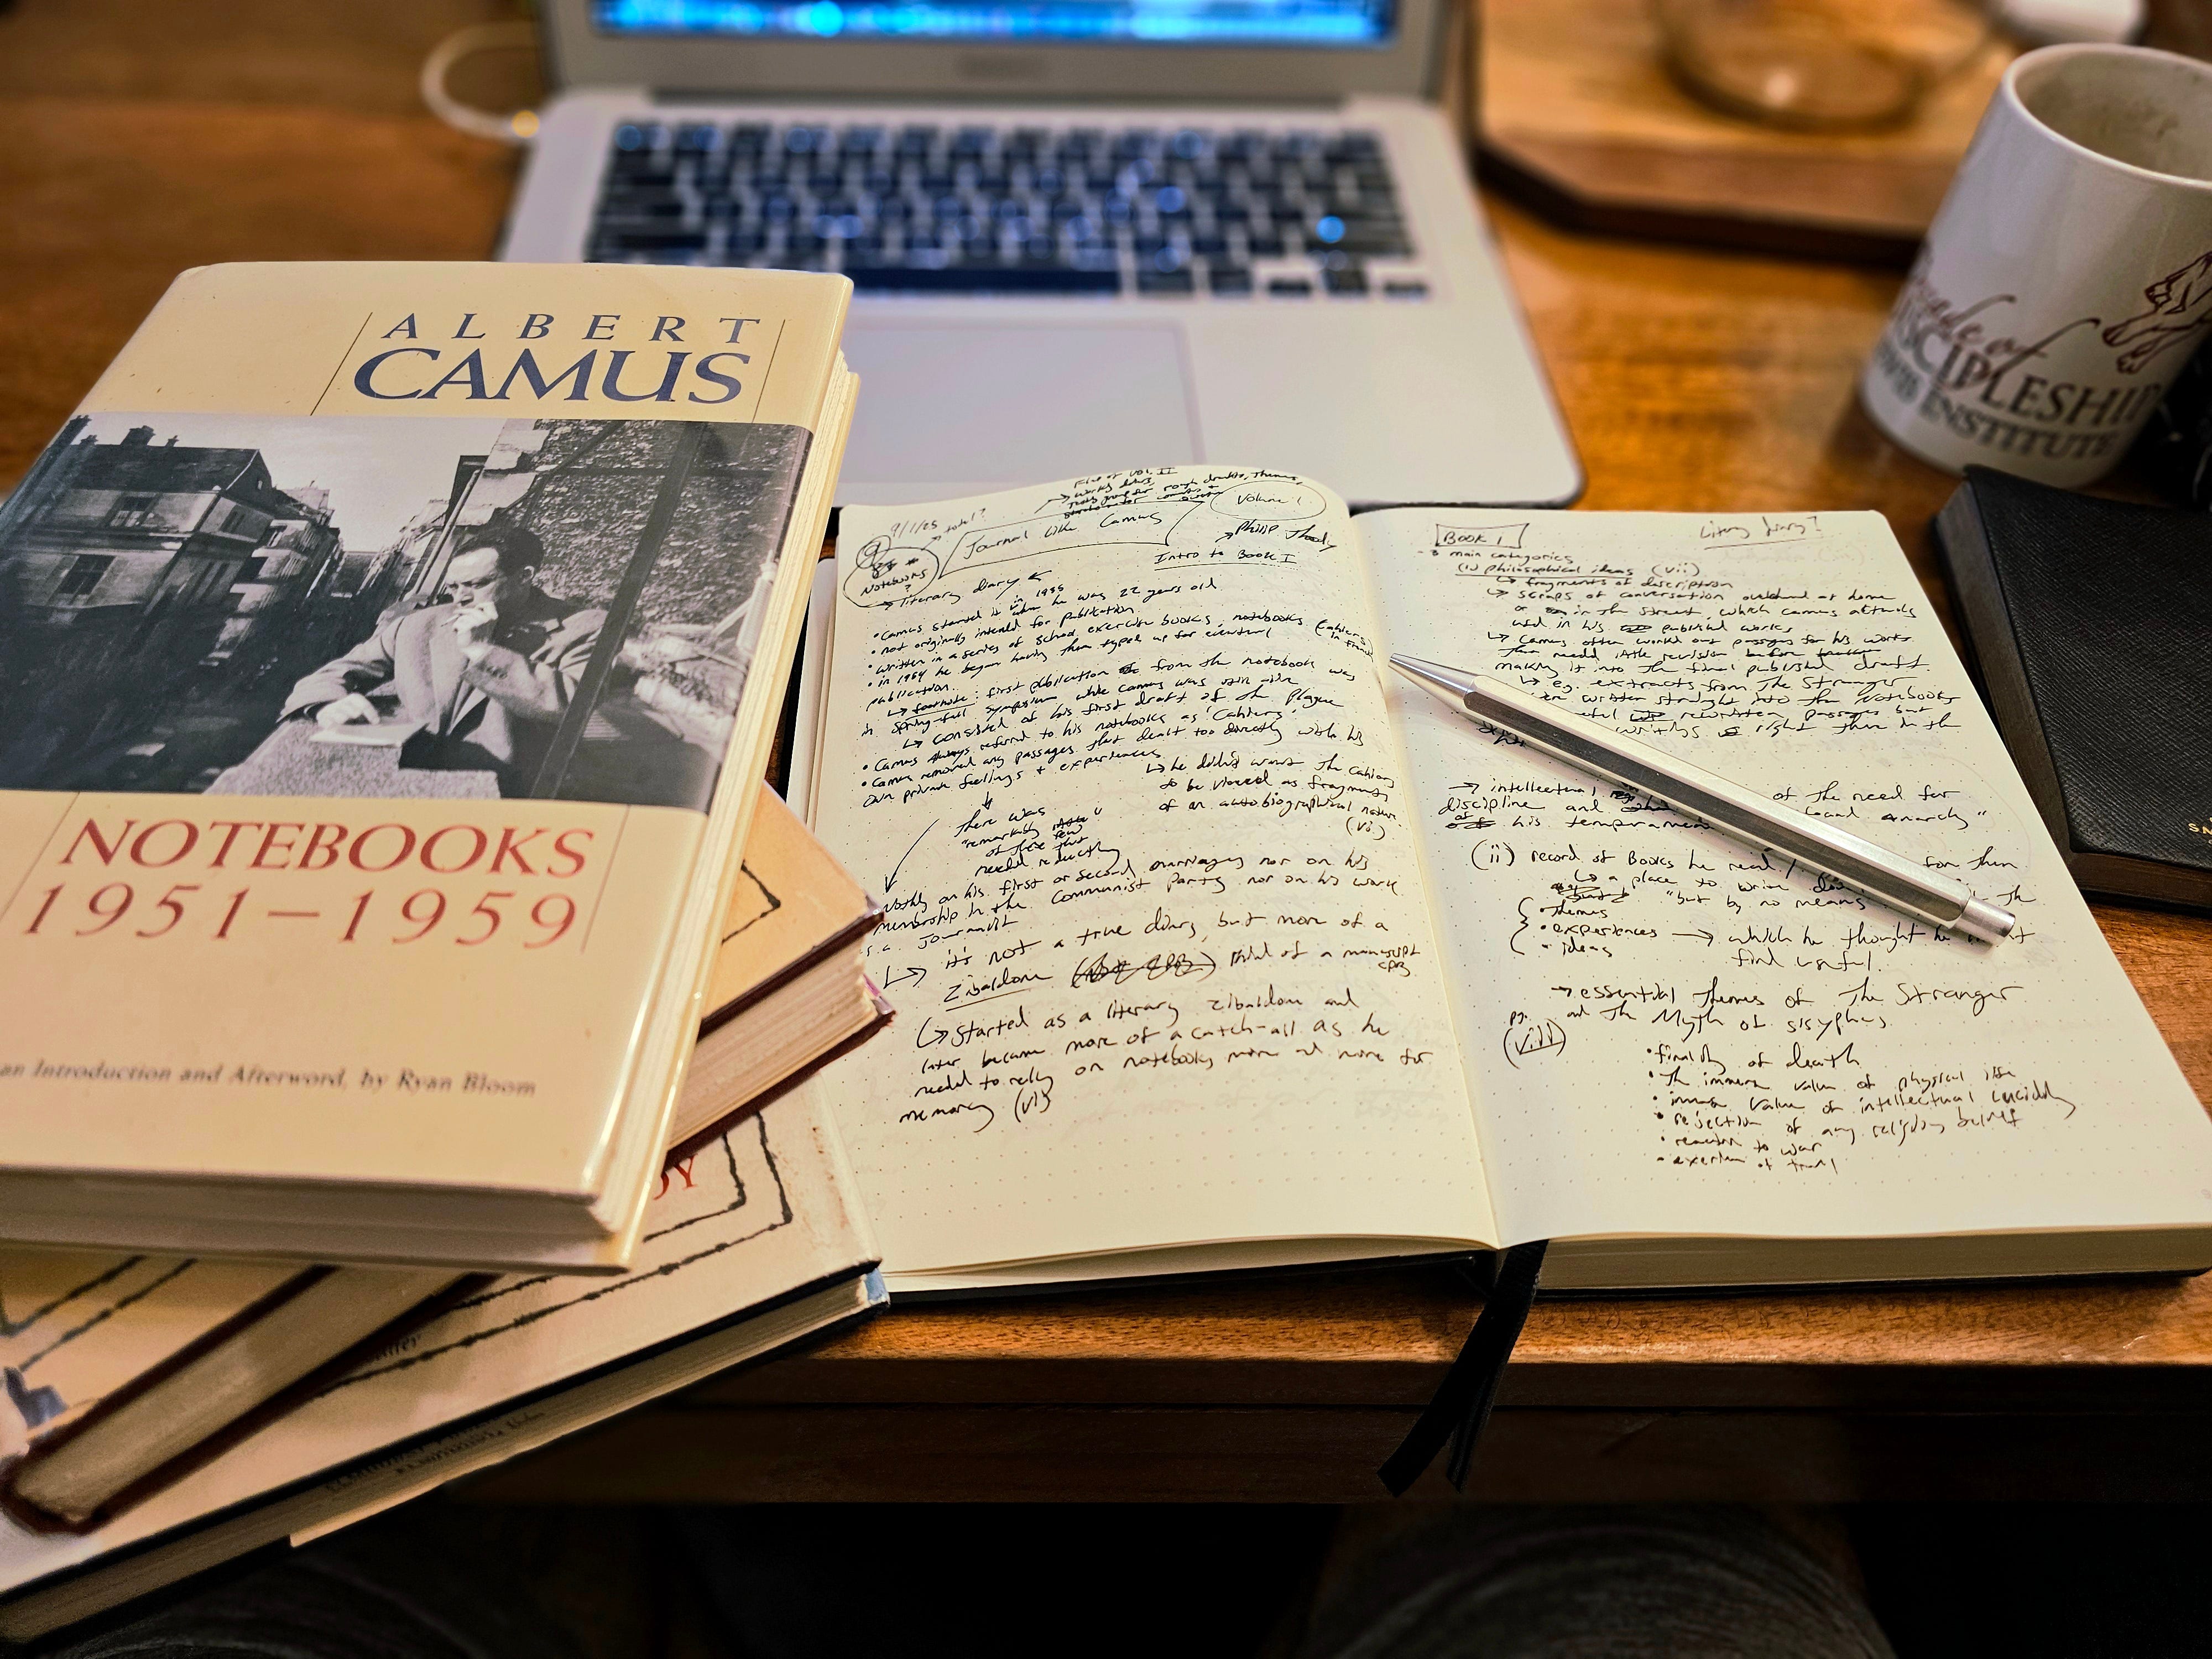 ALBERT
CAMUS
NOTEBOOKS
1951–1959
an Introduction and Afterword, by Ryan Bloom
made of
DISCIPLESHIP
INSTITUTE
9/1/25
Journal Like Camus
Volume 1
→ Philip Thody
Intro to Book I
Notebooks
?
→ literary diary ←
• Camus started it in 1935 when he was 22 years old
• not originally intended for publication.
• written in a series of school exercise books, notebooks (cahiers in French)
• in 1954 he began having them typed up for eventual
publication.
↳ footnote: first publication from the notebook was
in symposium while Camus was still alive
↳ consisted of his first draft of The Plague
• Camus always referred to his notebooks as 'Cahiers'
• Camus removed any passages that dealt too directly with his
own private feelings + experiences
↳ he didn't want the Cahiers
to be viewed as fragments
of an autobiographical nature.
(vi)
there was
"remarkably few"
of these that
needed redacting
Nothing on his first or second marriages nor on his
membership in the Communist Party nor on his work
as a journalist
↳ it's not a true diary, but more of a
Zibaldone kind of a manuscript
↳ started as a literary zibaldone and
later became more of a catch-all as he
needed to rely on notebooks more and more for
memory (vi)
Book 1
Literary diary?
- 3 main categories
(i) philosophical ideas (vii)
↳ fragments of description
↳ scraps of conversation overheard at home
or in the street, which Camus
used in his published works
↳ Camus often worked out passages for his works
that needed little revision before
making it into the final published draft.
↳ e.g. extracts from The Stranger
written straight into the Notebooks
rewritten passages but
right then in the
→ intellectual of the need for
discipline and anarchy"
of his temperament
(ii) record of Books he read / for them
↳ a place to write
"but by no means the
• themes
• experiences → which he thought he might
• ideas find useful.
→ essential themes of The Stranger
and The Myth of Sisyphus
pg. (viii)
• finality of death
• the immense value of physical life
• immense value of intellectual lucidity
• rejection of any religious belief
• reaction to war
• exertion of travel